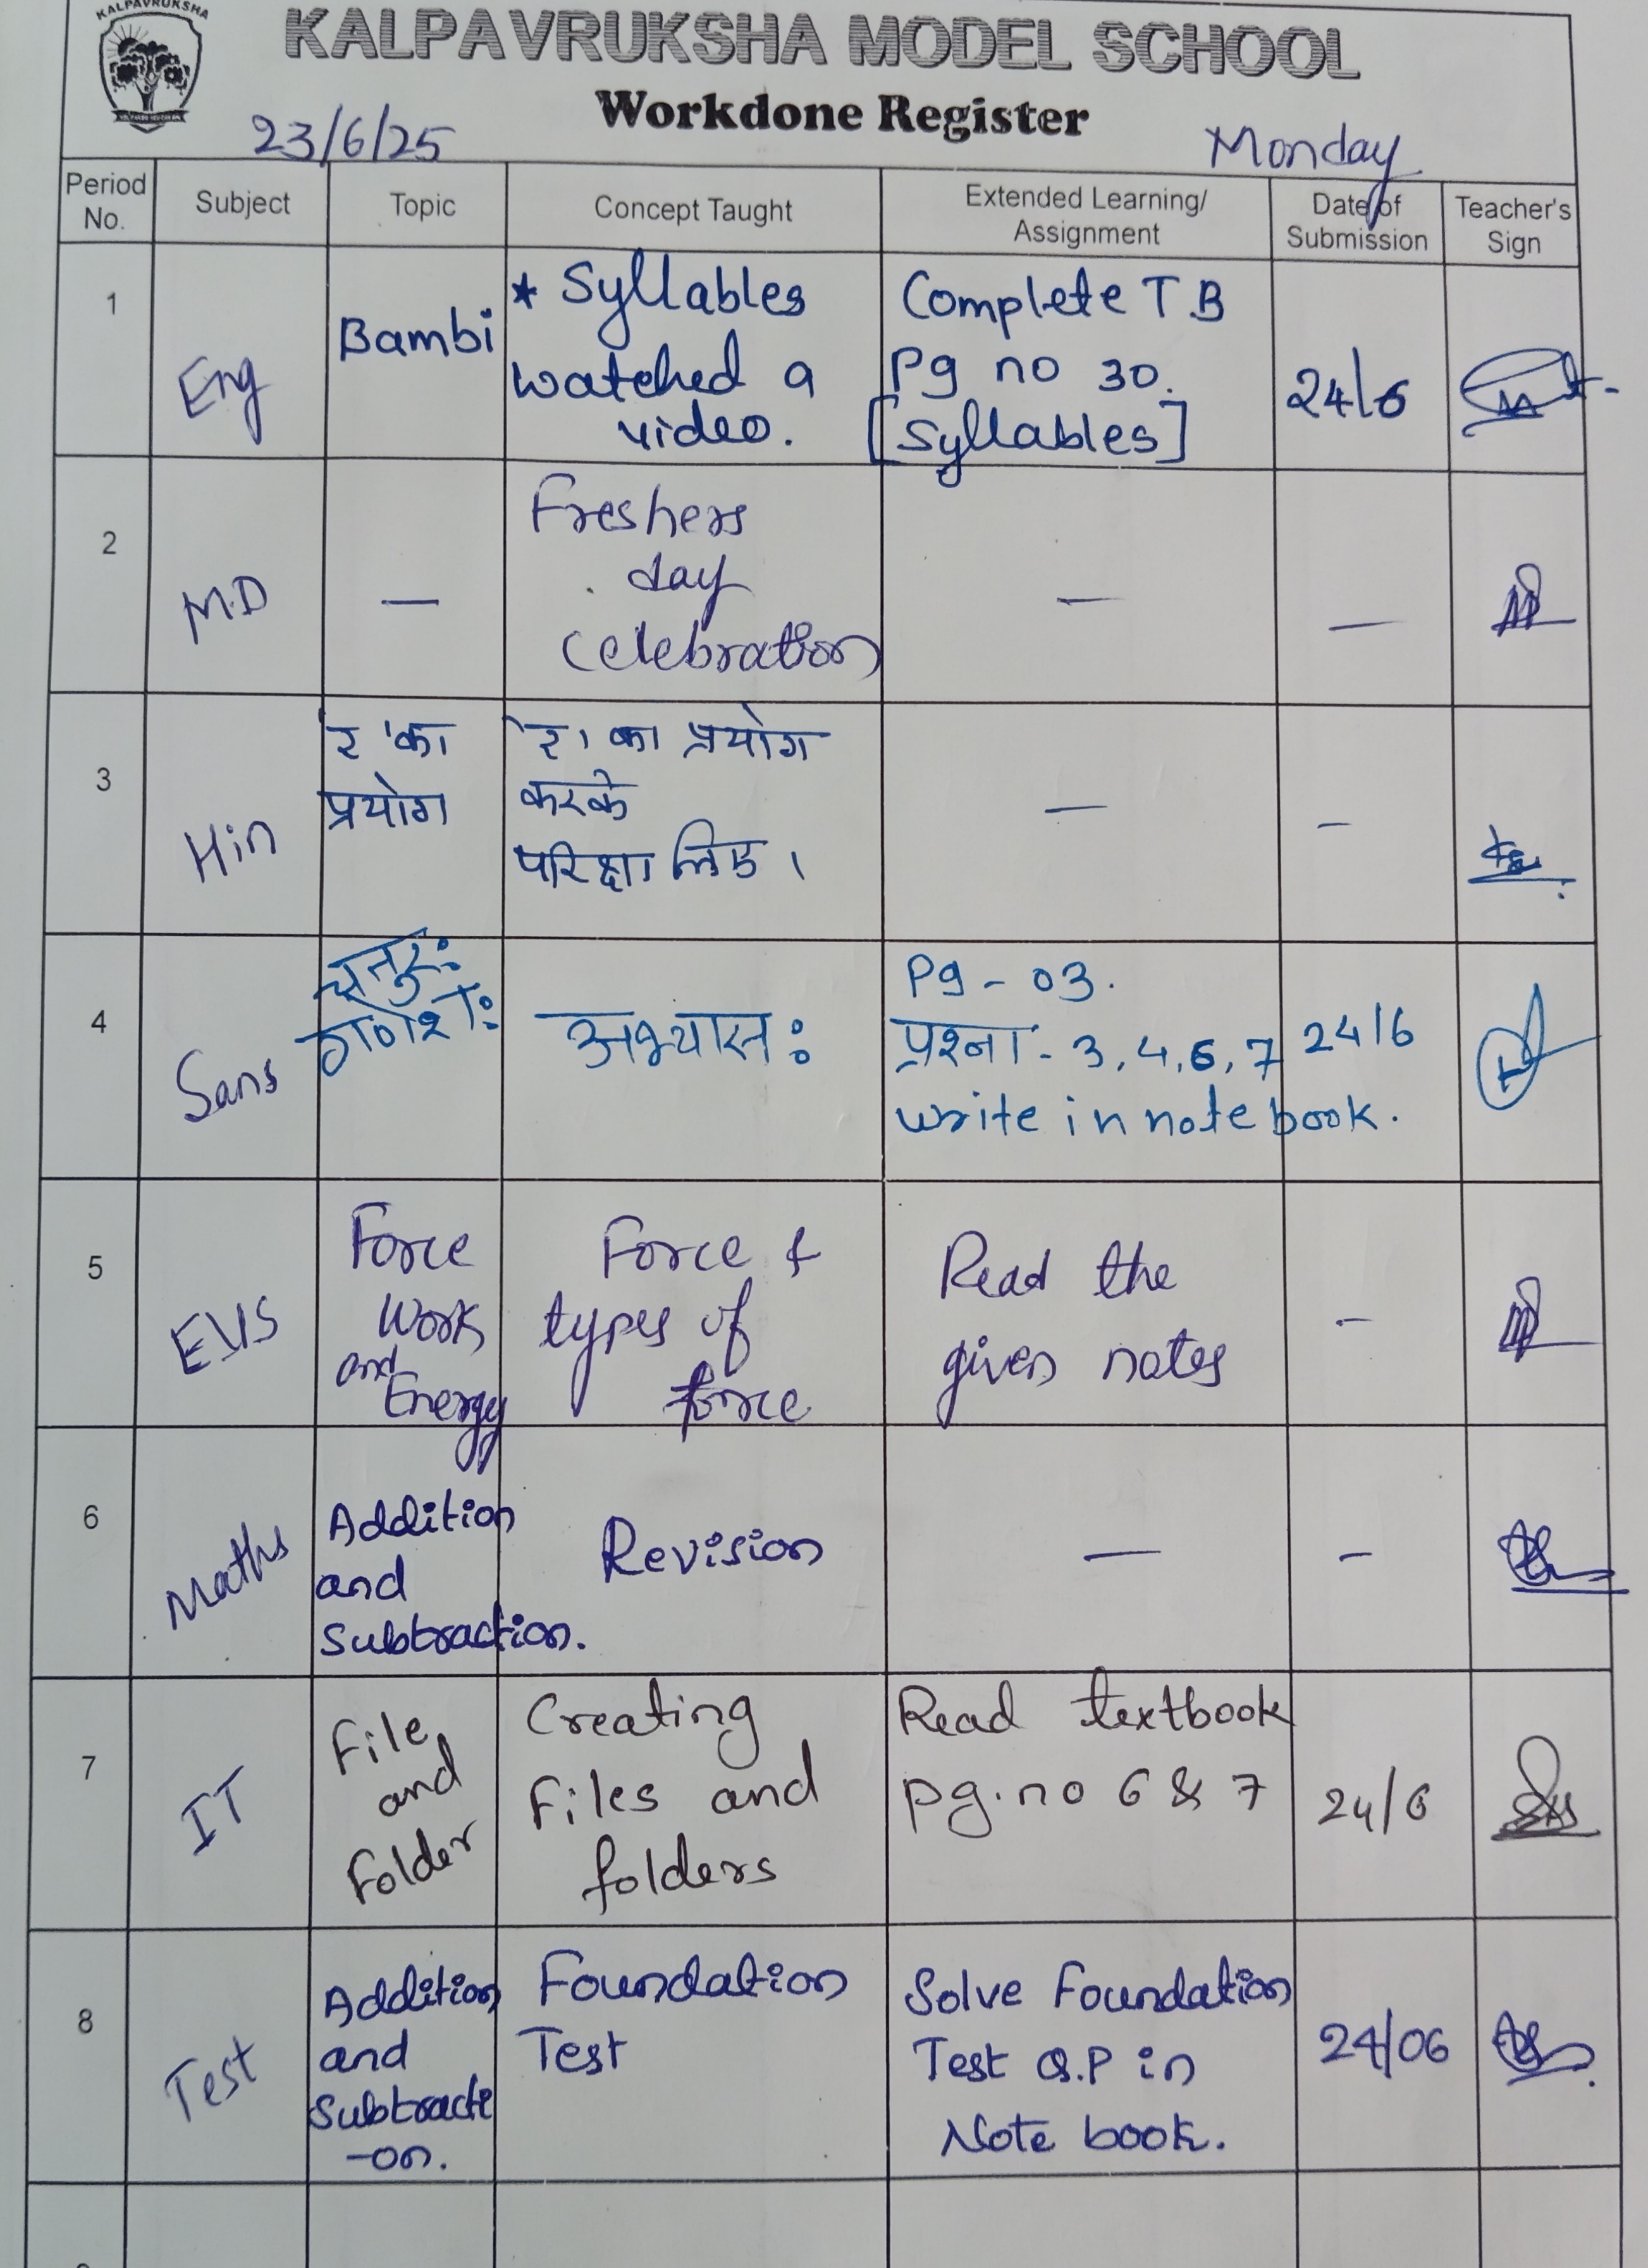 KALPAVRUKSHA
KALPAVRUKSHA MODEL SCHOOL
Workdone Register
23/6/25
Monday
Period No.
Subject
Topic
Concept Taught
Extended Learning/
Assignment
Date of
Submission
Teacher's
Sign
1
Eng
Bambi
* Syllables
watched a
video.
Complete T.B
Pg no 30.
[Syllables]
24/6
2
M.D
—
Freshers
day
celebration
—
—
3
Hin
'र' का
प्रयोग
'र' का प्रयोग
करके
परिक्षा लिए।
—
-
4
Sans
चतुरः
गणेशः
अभ्यासः
Pg - 03.
प्रश्ना - 3, 4, 6, 7
write in note book.
24/6
5
EVS
Force
Work
and
Energy
Force &
types of
force
Read the
given notes
-
6
Maths
Addition
and
Subtraction.
Revision
—
-
7
IT
File
and
Folder
Creating
Files and
folders
Read textbook
pg.no 6 & 7
24/6
8
Test
Addition
and
Subtracti
-on.
Foundation
Test
Solve Foundation
Test Q.P in
Note book.
24/06